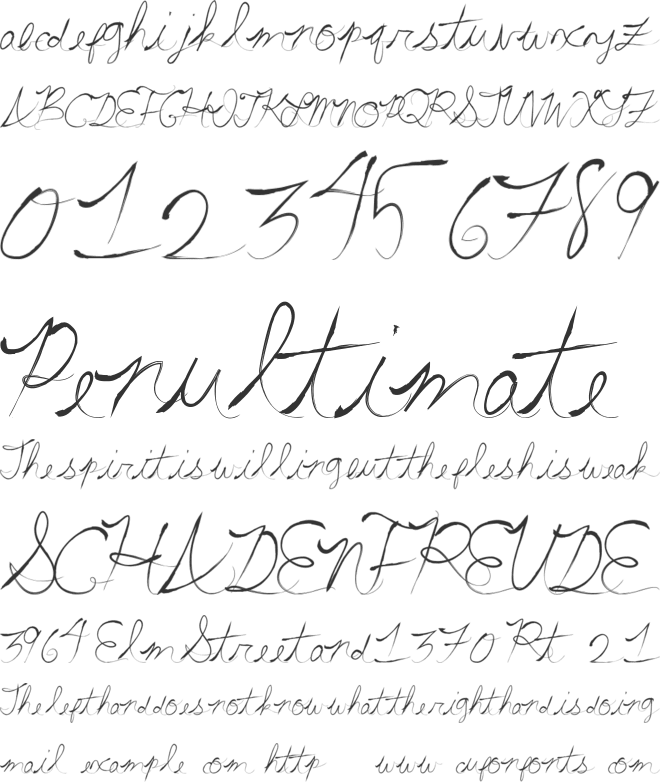 abcdefghijklmnopqrstuvwxyz
ABCDEFGHIJKLMNOPQRSTUVWXYZ
0 1 2 3 4 5 6 7 8 9
Penultimate
Thespiritiswillingbutthefleshisweak
SCHADENFREUDE
3964 Elm Streetand1370 Rt 21
Thelefthanddoesnotknowwhattherighthandisdoing
mail example com http www cufonfonts com